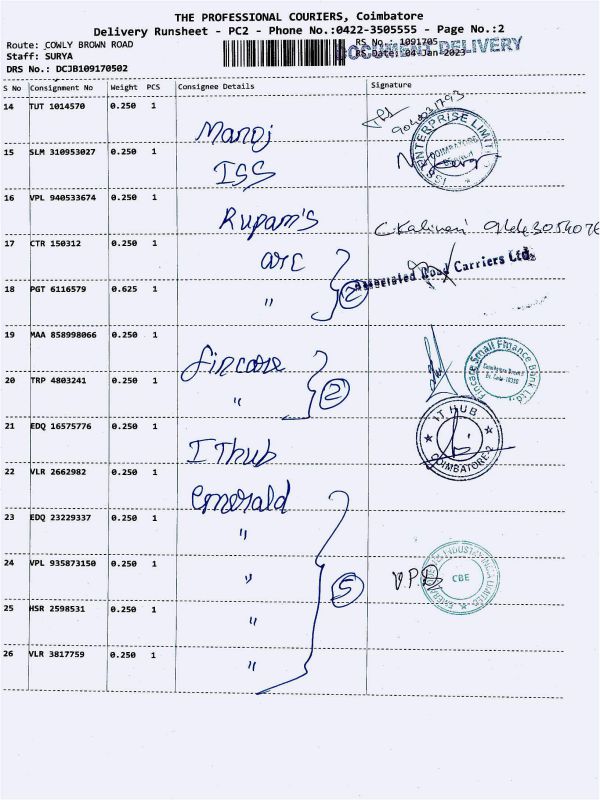 THE PROFESSIONAL COURIERS, Coimbatore
Delivery Runsheet - PC2 - Phone No.:0422-3505555 - Page No.:2
Route: COWLY BROWN ROAD
RS No.: 1091705
DOCUMENT DELIVERY
Staff: SURYA
RS Date: 04-Jan-2023
DRS No.: DCJB109170502
S No Consignment No Weight PCS Consignee Details Signature
14 TUT 1014570 0.250 1 Manoj
9040031793
15 SLM 310953027 0.250 1 ISS
ENTERPRISE LIMIT
COIMBATORE
16 VPL 940533674 0.250 1 Rupam's C Kalivani
17 CTR 150312 0.250 1 arc
Associated Road Carriers Ltd.
18 PGT 6116579 0.625 1 " 2
19 MAA 858998066 0.250 1 fincare
Fincare Small Finance Bank Ltd.
20 TRP 4803241 0.250 1 " 2
21 EDQ 16575776 0.250 1 IThub
IT HUB
COIMBATORE-2
22 VLR 2662982 0.250 1 emerald
23 EDQ 23229337 0.250 1 "
24 VPL 935873150 0.250 1 " 5 V.P.D
CBE
25 HSR 2598531 0.250 1 "
26 VLR 3817759 0.250 1 "